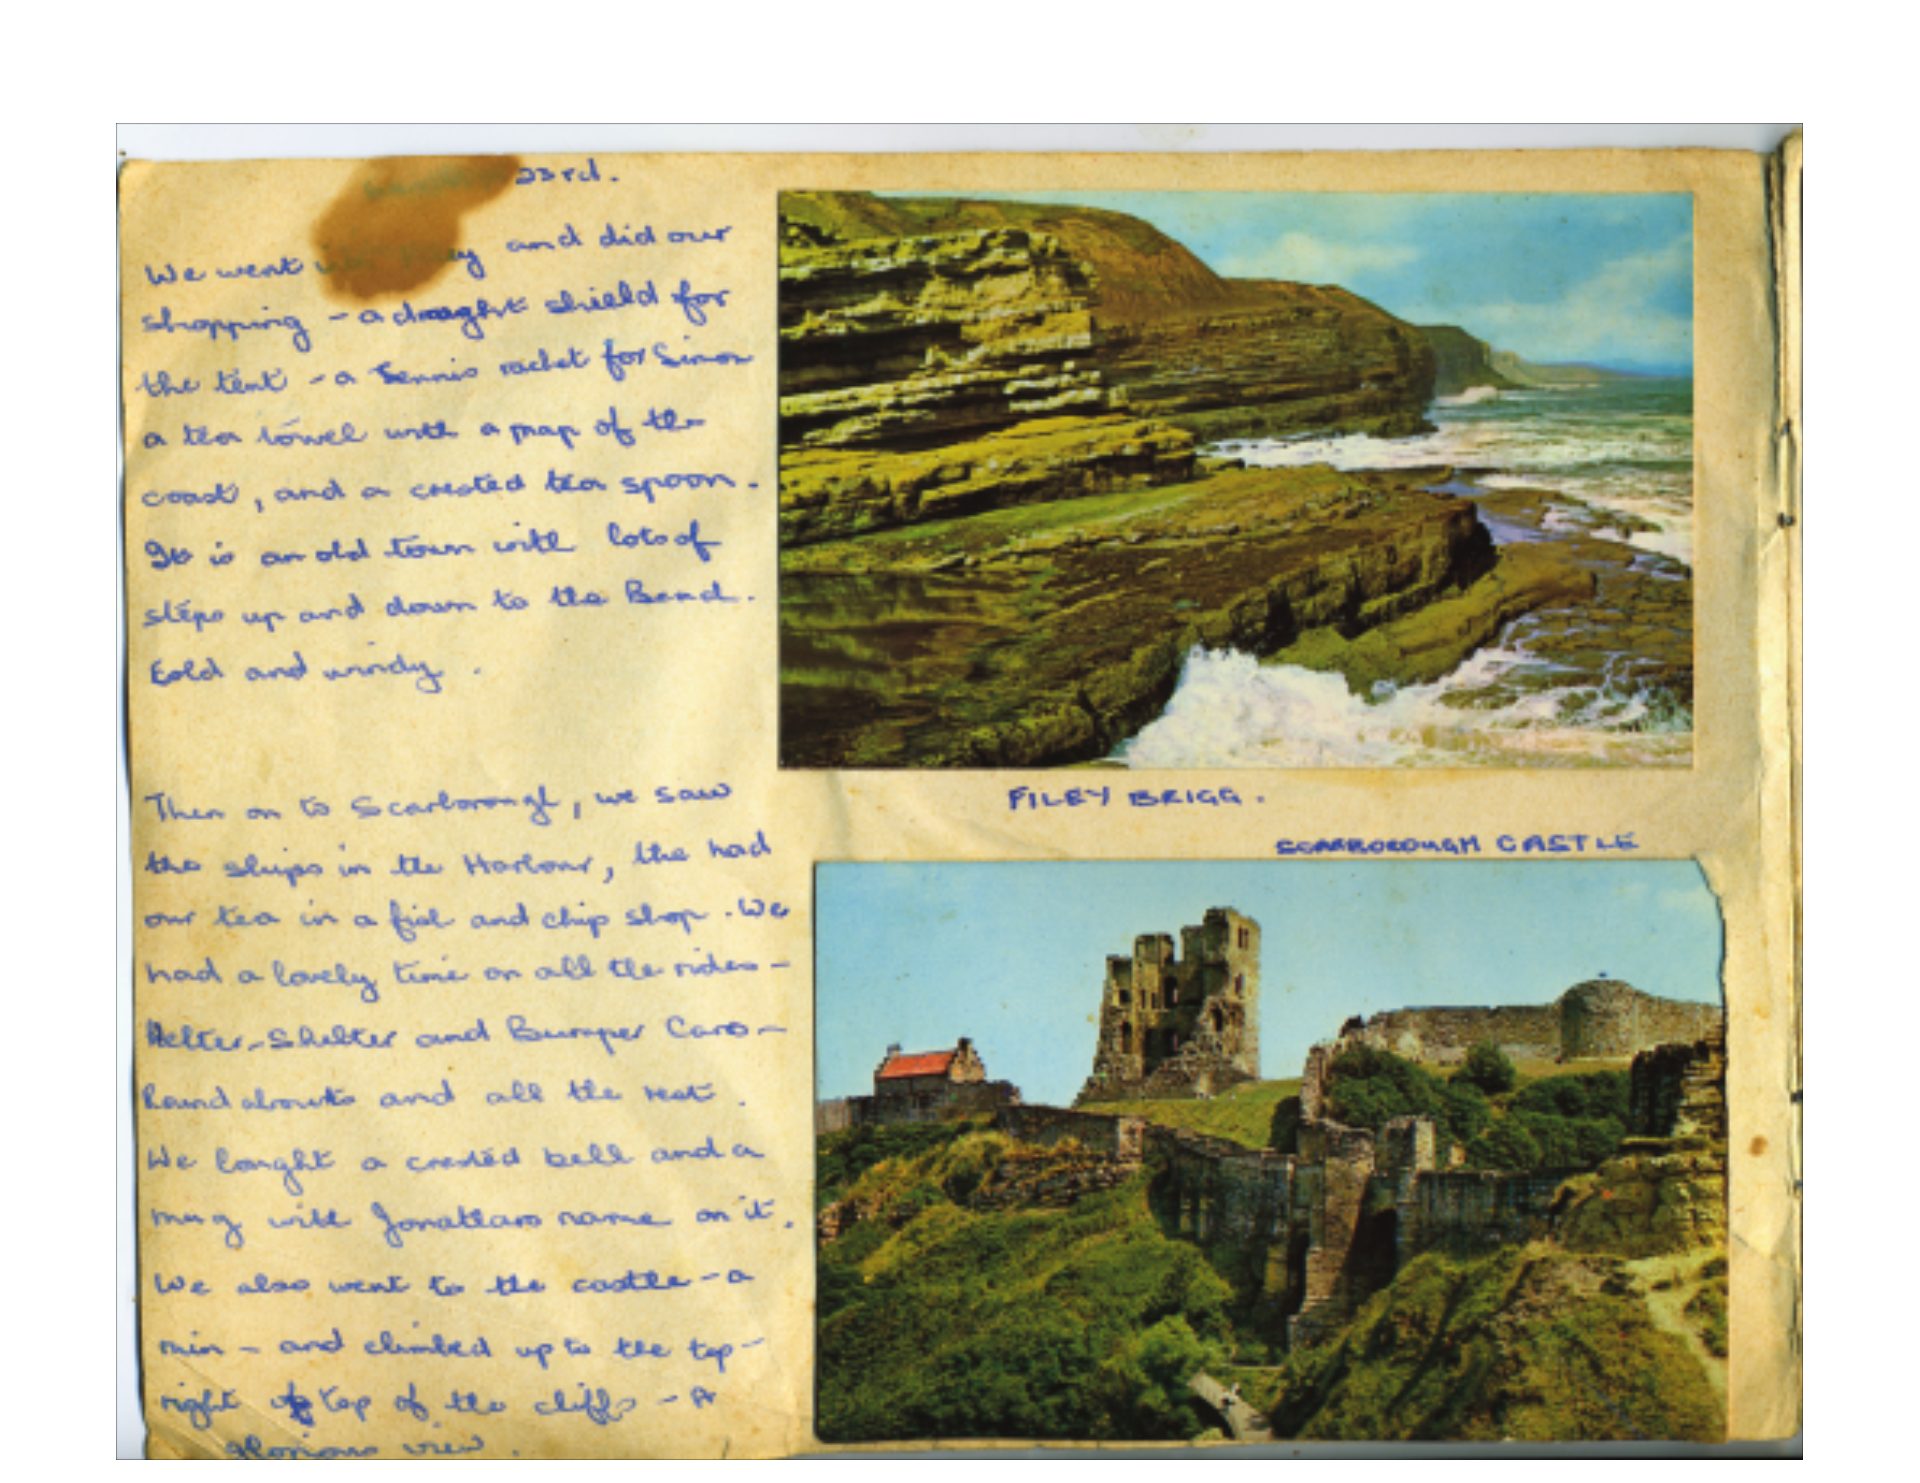 23rd.
We went and did our
shopping - a draught shield for
the tent - a tennis racket for Simon
a tea towel with a map of the
coast, and a crested tea spoon.
It is an old town with lots of
steps up and down to the Beach.
Cold and windy.
Then on to Scarborough, we saw
the ships in the Harbour, the had
our tea in a fish and chip shop. We
had a lovely time on all the rides -
Helter-Shelter and Bumper Cars -
Roundabouts and all the rest.
We bought a crested bell and a
mug with Jonathans name on it.
We also went to the castle - a
ruin - and climbed up to the top -
right top of the cliffs - A
glorious view.
FILEY BRIGG.
SCARBOROUGH CASTLE